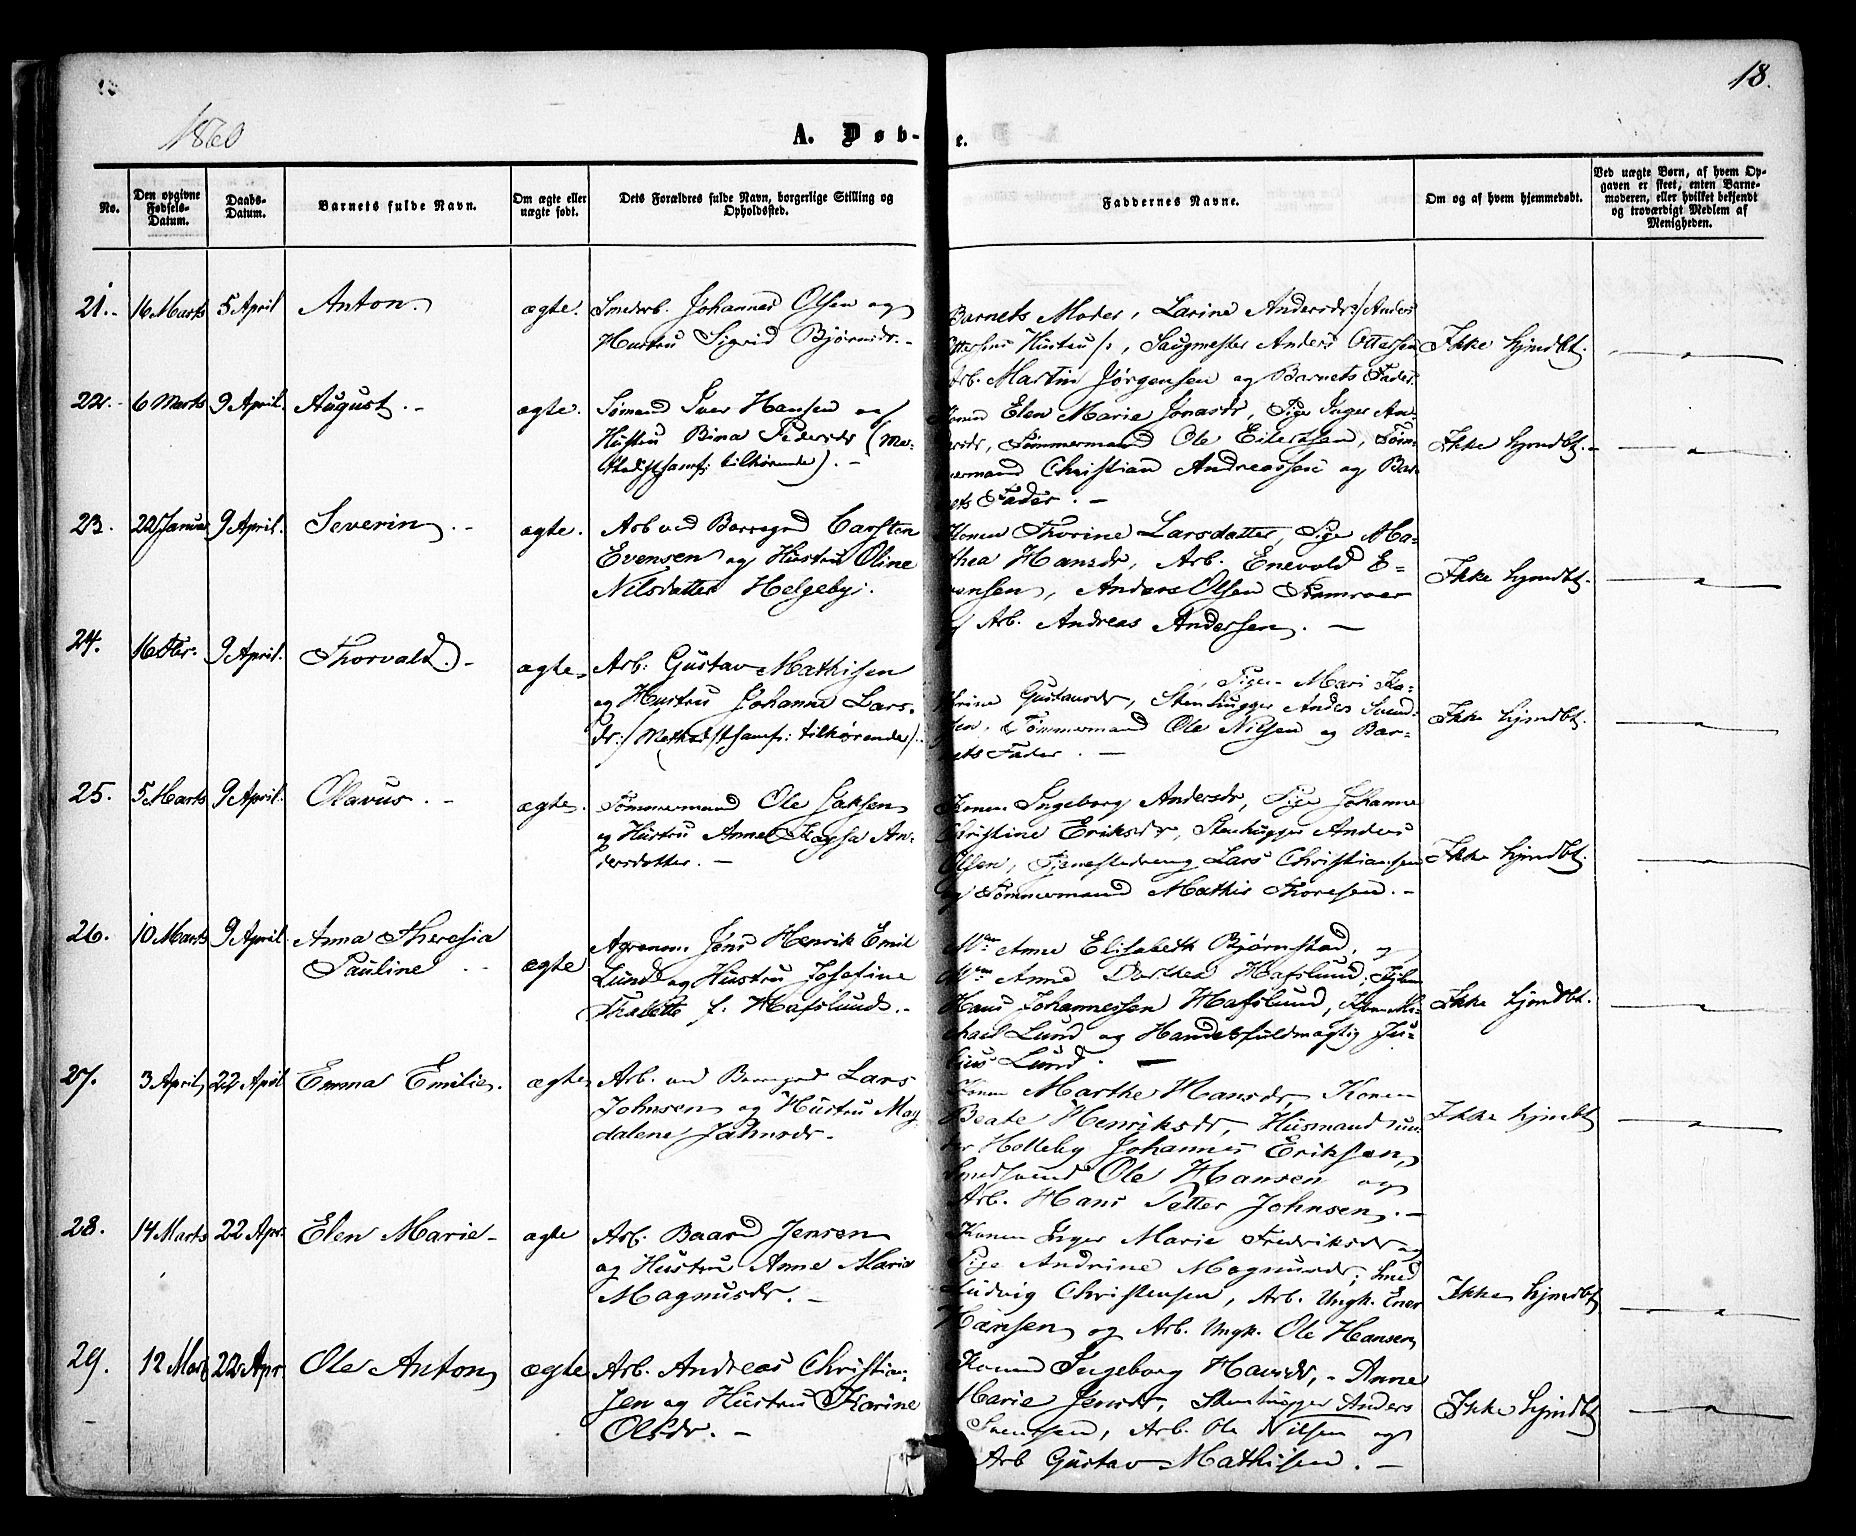 18.
1860
A. Døb-
e.
No.
Den opgivne Fødsels-Datum.
Daabs-Datum.
Barnets fulde Navn.
Om ægte eller uægte født.
Dets Forældres fulde Navn, borgerlige Stilling og Opholdssted.
Faddernes Navne.
Om og af hvem hjemmedøbt.
Ved uægte Børn, af hvem Op-
gaven er skeet, enten Barne-
moderen, eller hvilket bekjendt
og troværdigt Medlem af
Menigheden.
21. 16 Marts 5 April Anton. ægte. Smedarb. Johannes Olsen og
Hustru Sigrid Bjørnsdr.
Barnets Moder, Larine Andersdr /: Anders
Ottersens Hustru :/, Saugmester Anders Ottersen
Arb. Martin Jørgensen og Barnets Fader.
Ikke hjmdbt.
22. 6 Marts 9 April. August. ægte. Sømand Iver Hansen og
Hustru Bina Pedersdr (Me-
thodistsamf: tilhørende).
Konen Elen Marie Jonasdr, Pige Inger An-
dersdr, Tømmermand Ole Eilertsen, Tøm-
mermand Christian Andreassen og Bar-
nets Fader.
Ikke hjmdbt.
23. 22 Januar 9 April. Severin. ægte. Arb ved Borregrd Carsten
Evensen og Hustru Oline
Nilsdatter Helgeby.
Konen Thorine Larsdatter, Pige Ma-
thea Hansdr, Arb. Enevold E-
vensen, Anders Olsen
og Arb. Andreas Andersen.
Ikke hjmdbt.
24. 16 9 April. Thorvald. ægte. Arb: Gustav Mathisen
og Hustru Johanne Lars-
dr: / Methodistsamf: tilhørende /.
Pige Mari Ka-
thrine Gustavsdr, Stenhugger Anders Svend-
sen, Tømmermand Ole Nilsen og Bar-
nets Fader.
Ikke hjmdbt.
25. 5 Marts 9 April. Olavus. ægte. Tømmermand Ole Jaksen
og Hustru Anne Kaysa An-
dersdatter.
Konen Ingeborg Andersdr, Pige Johanne
Christine Eriksdr, Stenhugger Anders
Olsen, Tjenestedreng Lars Christiansen
og Tømmermand Mathis Thoresen.
Ikke hjmdbt.
26. 10 Marts 9 April Anna Theresia
Pauline ægte Agronom Jens Henrik Emil
Lund og Hustru Josefine
f. Hafslund.
Mdm Anne Elisabeth Bjørnstad, og
Mdm Anne Dorthea Hafslund,
Hans Johannessen Hafslund, Mi-
chael Lund og Handelsfuldmægtig Ju-
lius Lund.
Ikke hjmdbt.
27. 3 April, 22 April Emma Emilie. ægte Arb. ved Borregrd Lars
Johnsen og Hustru Mag-
dalene Johnsdr.
Konen Marthe Hansdr, Konen
Beate Henriksdr, Husmand un-
der Holleby Johannes Eriksen,
Smedsvend Ole Hansen og
Arb. Hans Petter Johnsen.
Ikke hjmdbt
28. 14 Marts 22 Apr. Elen Marie ægte Arb. Baard Jensen
og Hustru Anne Marie
Magnusdr.
Konen Inger Marie Fredriksdr og
Pige Andrine Magnusdr, Smed
Ludvig Christensen, Arb. Ungk. Ener
Hansen og Arb. Ungk. Ole Hansen
Ikke hjmdbt
29. 12 Mar 22 Apr. Ole Anton ægte Arb. Andreas Christian-
sen og Hustru Karine
Olsdr.
Konen Ingeborg Hansdr, Anne
Marie Jensdr, Stenhugger Anders
Svendsen, Arb. Ole Nilsen og
Arb Gustav Mathisen.
Ikke hjmdbt